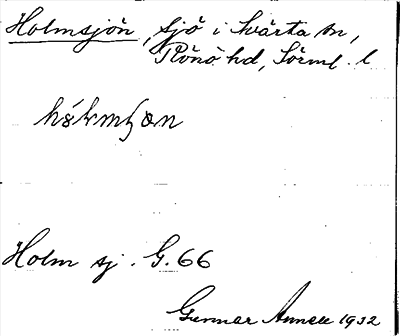 Holmsjön, sjö i Svärta sn,
Rönö hd, Sörml. l
Holm sj. G. 66
Gunnar 1932